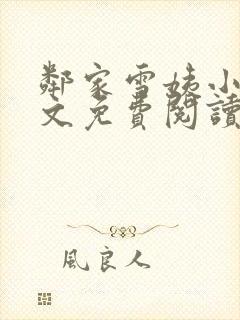 鄰家雪姨小
文免費閱讀
風良人